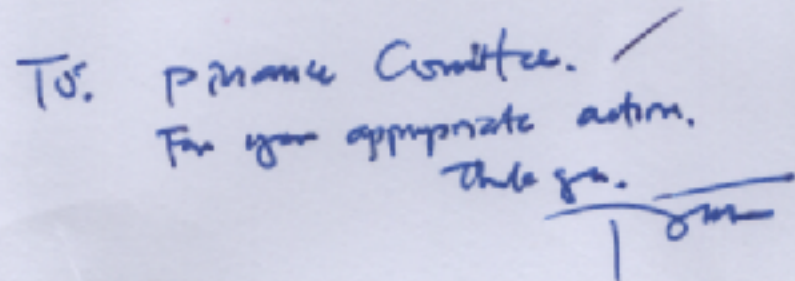 To: Finance Comittee.
For your appropriate action.
Thank you.